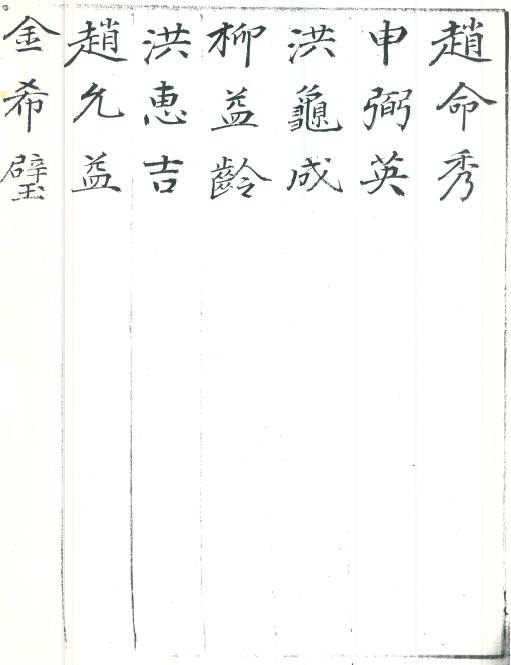 趙命秀
申弼英
洪龜成
柳益齡
洪惠吉
趙允益
金希璧